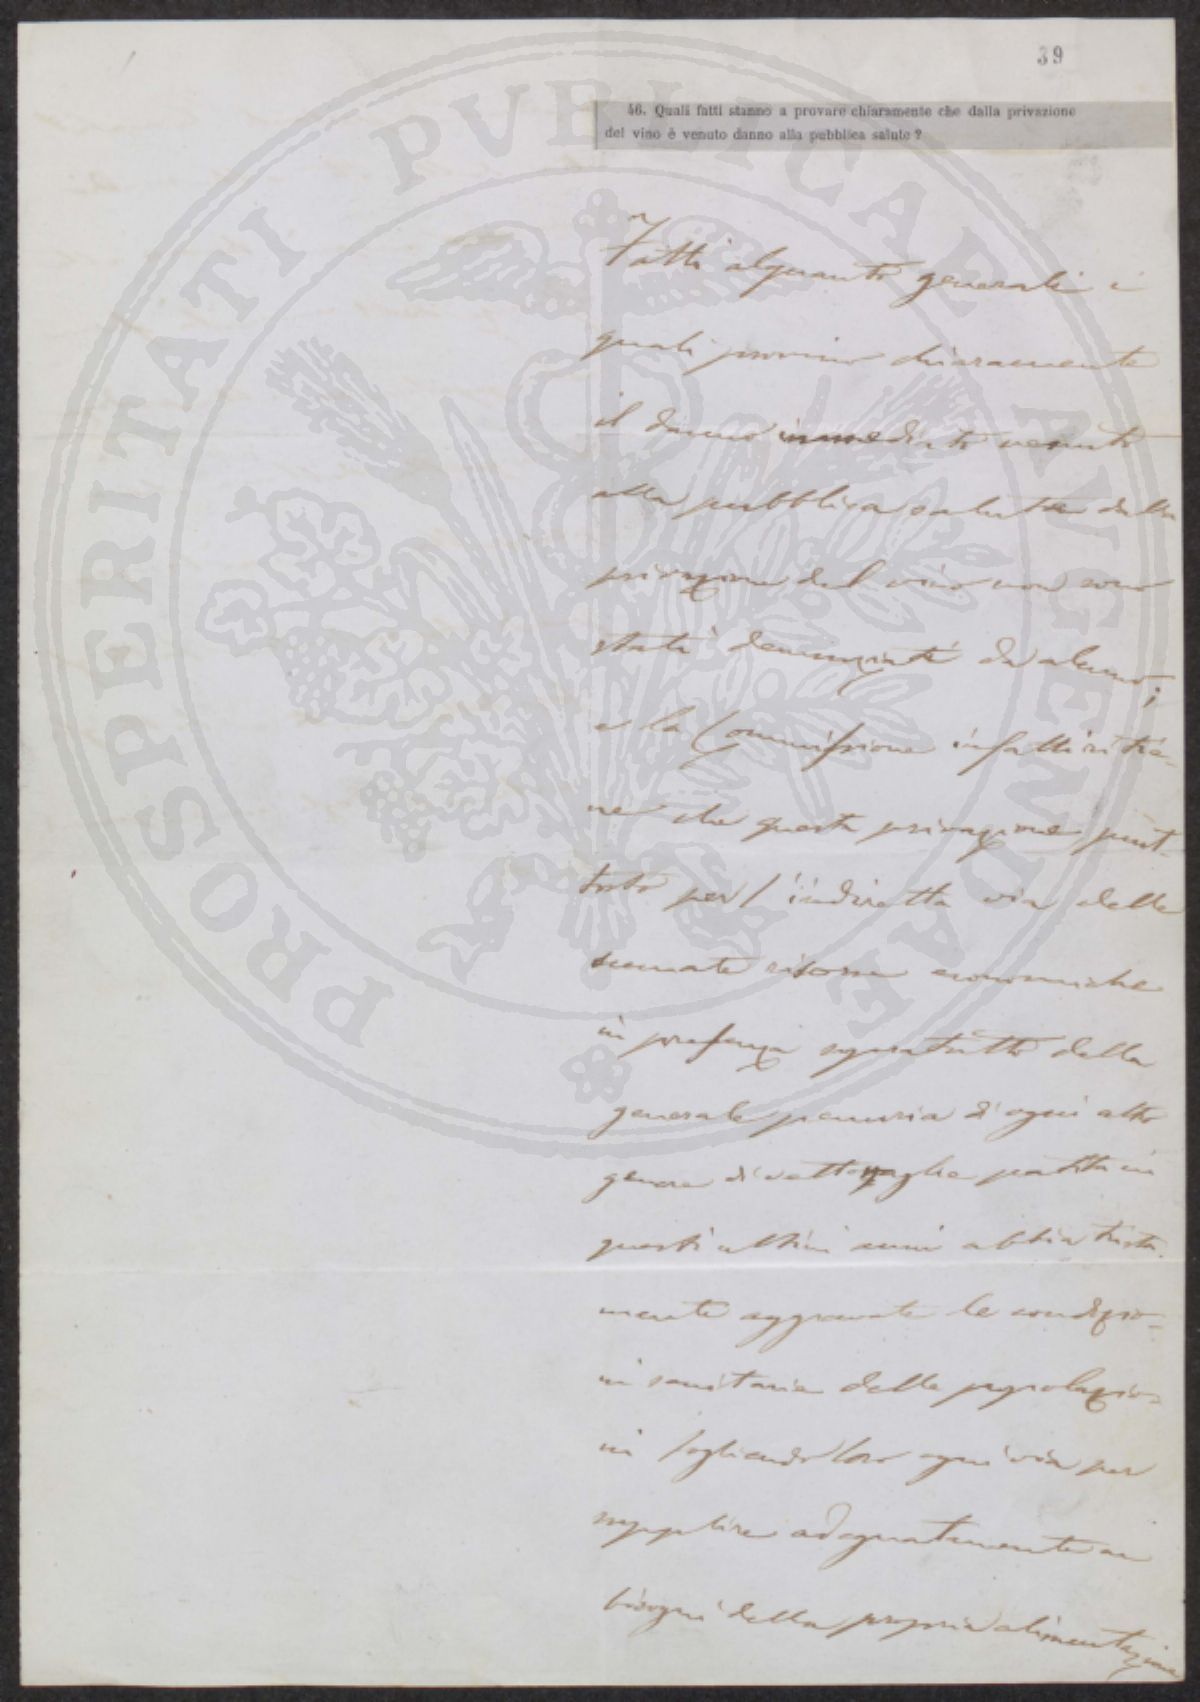 39
46. Quali fatti stanno a provare chiaramente che dalla privazione
del vino è venuto danno alla pubblica salute?
PROSPERITATI PUBLICAE AUGENDAE
Fatti alquanto generali i
quali provino chiaramente
il danno immediato venuto
alla pubblica salute dalla
privazione del vino non sono
stati denunziati da alcuno;
e la Commissione infatti ritie-
ne che questa privazione piut-
tosto per l'indiretta via delle
scemate risorse economiche
in presenza sopratutto della
generale penuria di ogni altro
genere di vettovaglie patita in
questi ultimi anni abbia trista-
mente aggravate le condizio-
ni sanitarie delle popolazio-
ni togliendo loro ogni via per
supplire adeguatamente ai
bisogni della propria alimentazione